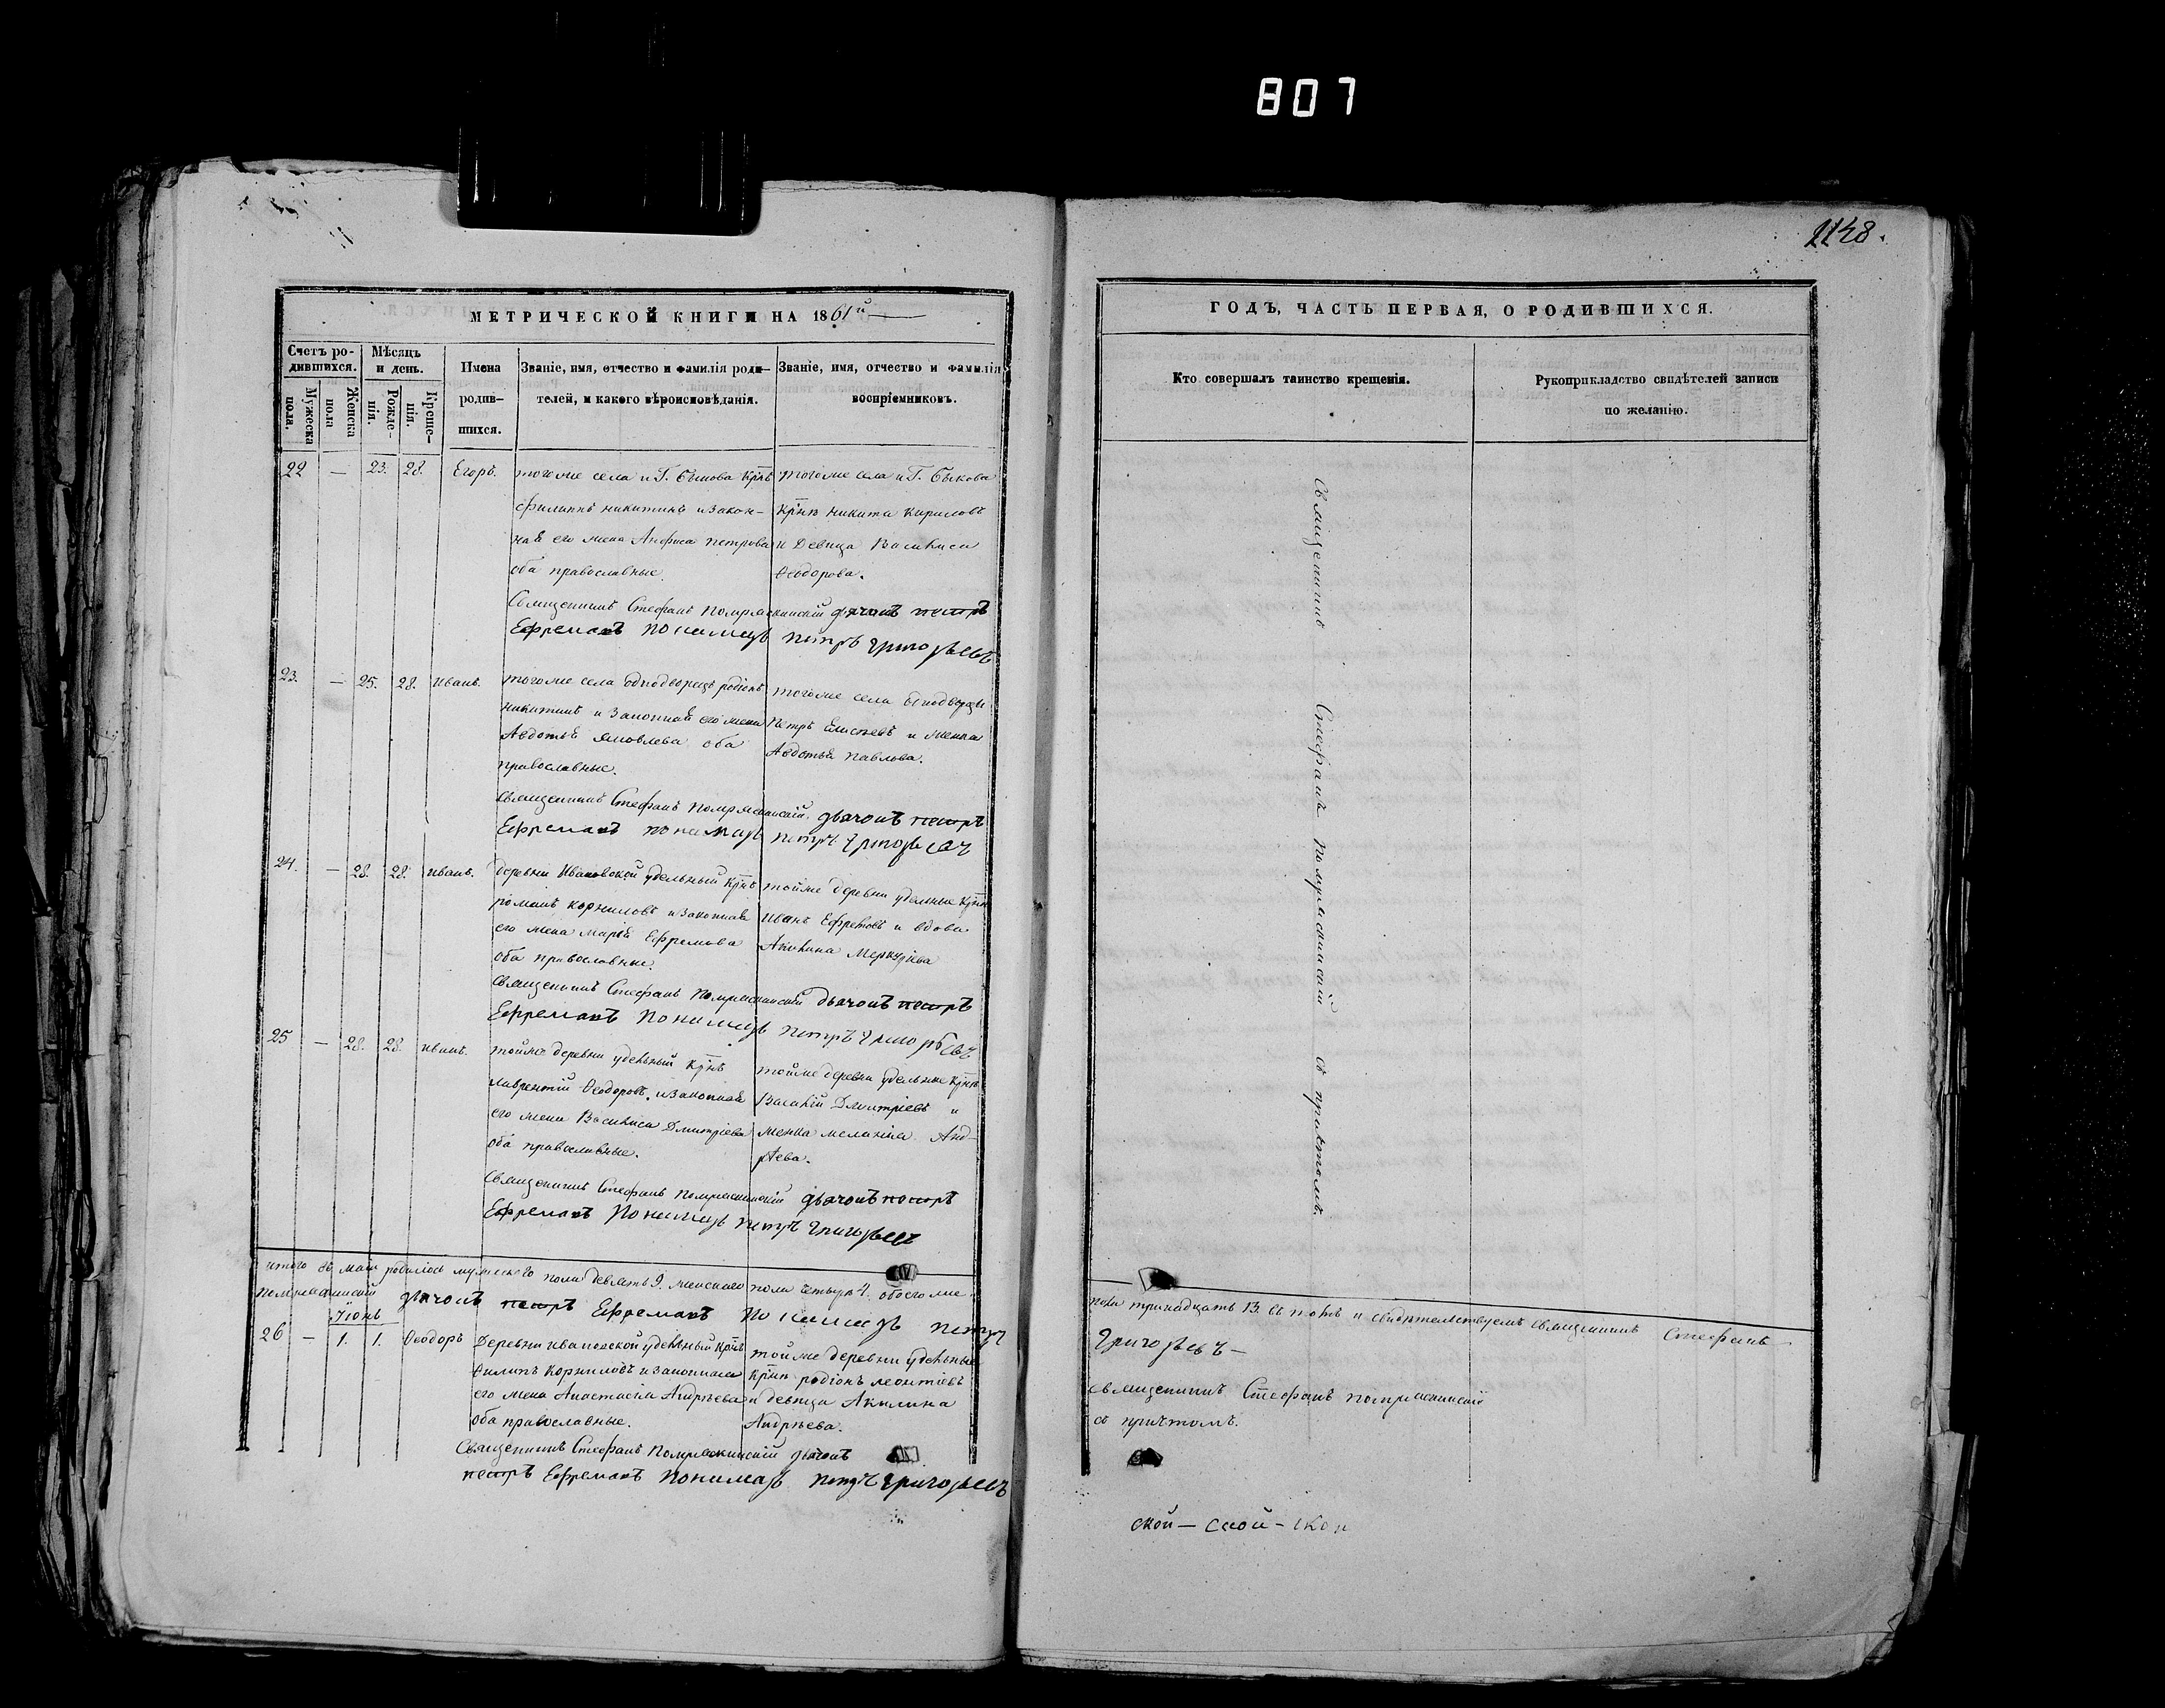 807
1148.
МЕТРИЧЕСКОЙ КНИГИ НА 1861й
Счетъ ро-
дившихся.
Мужеска
пола.
Женска
пола
Мѣсяцъ
и день.
Рожде-
нія.
Креще-
нія.
Имена
родив-
шихся.
Званіе, имя, отчество и фамилія роди-
телей, и какого вѣроисповѣданія.
Званіе, имя, отчество и фамилія
воспріемниковъ.
22 — 23. 28. Егоръ.
тогоже села и Г. Быкова крнъ
филиппъ никитинъ и закон-
ная его жена Анфиса петрова
оба православные.
тогоже села и Г. Быкова
крнъ никита кириловъ
и Девица Василиса
Ѳеодорова.
Священникъ Стефанъ дьячокъ петръ
Ефремовъ пономарь петръ григорьевъ
23. — 25. 28. иванъ.
тогоже села однодворецъ родіонъ
никитинъ и законная его жена
Авдотья яковлева оба
православные.
тогоже села однодворцы
петръ Елисѣевъ и женка
Авдотья павлова.
священникъ Стефанъ дьячокъ петръ
Ефремовъ пономарь петръ григорьевъ
24. — 28. 28. иванъ.
деревни Ивановской удельный крнъ
романъ корниловъ и законная
его жена марья Ефремова
оба православные.
тойже деревни удельные крне
иванъ Ефремовъ и вдова
Акилина Меркуріева
священникъ Стефанъ дьячокъ петръ
Ефремовъ пономарь петръ григорьевъ
25 — 28. 28. иванъ.
тойже деревни удельный крнъ
лаврентій Ѳеодоровъ. и законная
его жена Василиса Дмитріева
оба православные.
тойже деревни удельные крне
Василій Дмитріевъ и
женка меланія Анд-
рѣева.
священникъ Стефанъ дьячокъ петръ
Ефремовъ пономарь петръ григорьевъ
итого въ маѣ родилось мужескаго пола девять 9. женскаго пола четыре 4. обоего же
дьячокъ петръ Ефремовъ пономарь петръ
Іюнь
26 — 1. 1. Ѳеодоръ
Деревни ивановской удельный крнъ
Филипъ Корниловъ и законная
его жена Анастасія Андрѣева
оба православные.
тойже деревни удельные
крне родіонъ леонтіевъ
и девица Акилина
Андрѣева.
Священникъ Стефанъ дьячокъ
петръ Ефремовъ пономарь петръ григорьевъ
ГОДЪ, ЧАСТЬ ПЕРВАЯ, О РОДИВШИХСЯ.
Кто совершалъ таинство крещенія.
Рукоприкладство свидѣтелей записи
по желанію.
Священникъ Стефанъ съ причтомъ.
пола тринадцать 13. въ томъ и свидѣтельствуемъ священникъ Стефанъ
григорьевъ —
священникъ Стефанъ
съ причтомъ.
ской — ской — ской